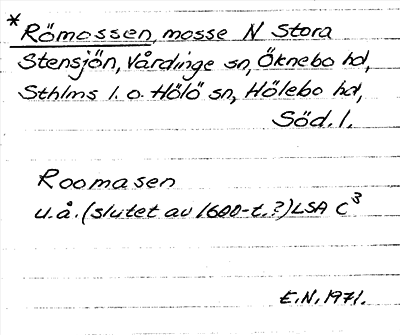 *Römossen, mosse N Stora
Stensjön, Vårdinge sn, Öknebo hd,
Sthlms l. o. Hölö sn, Hölebo hd,
Söd. l.
Roomasen
u.å. (slutet av 1600-t.?) LSA C³
E.N. 1971.